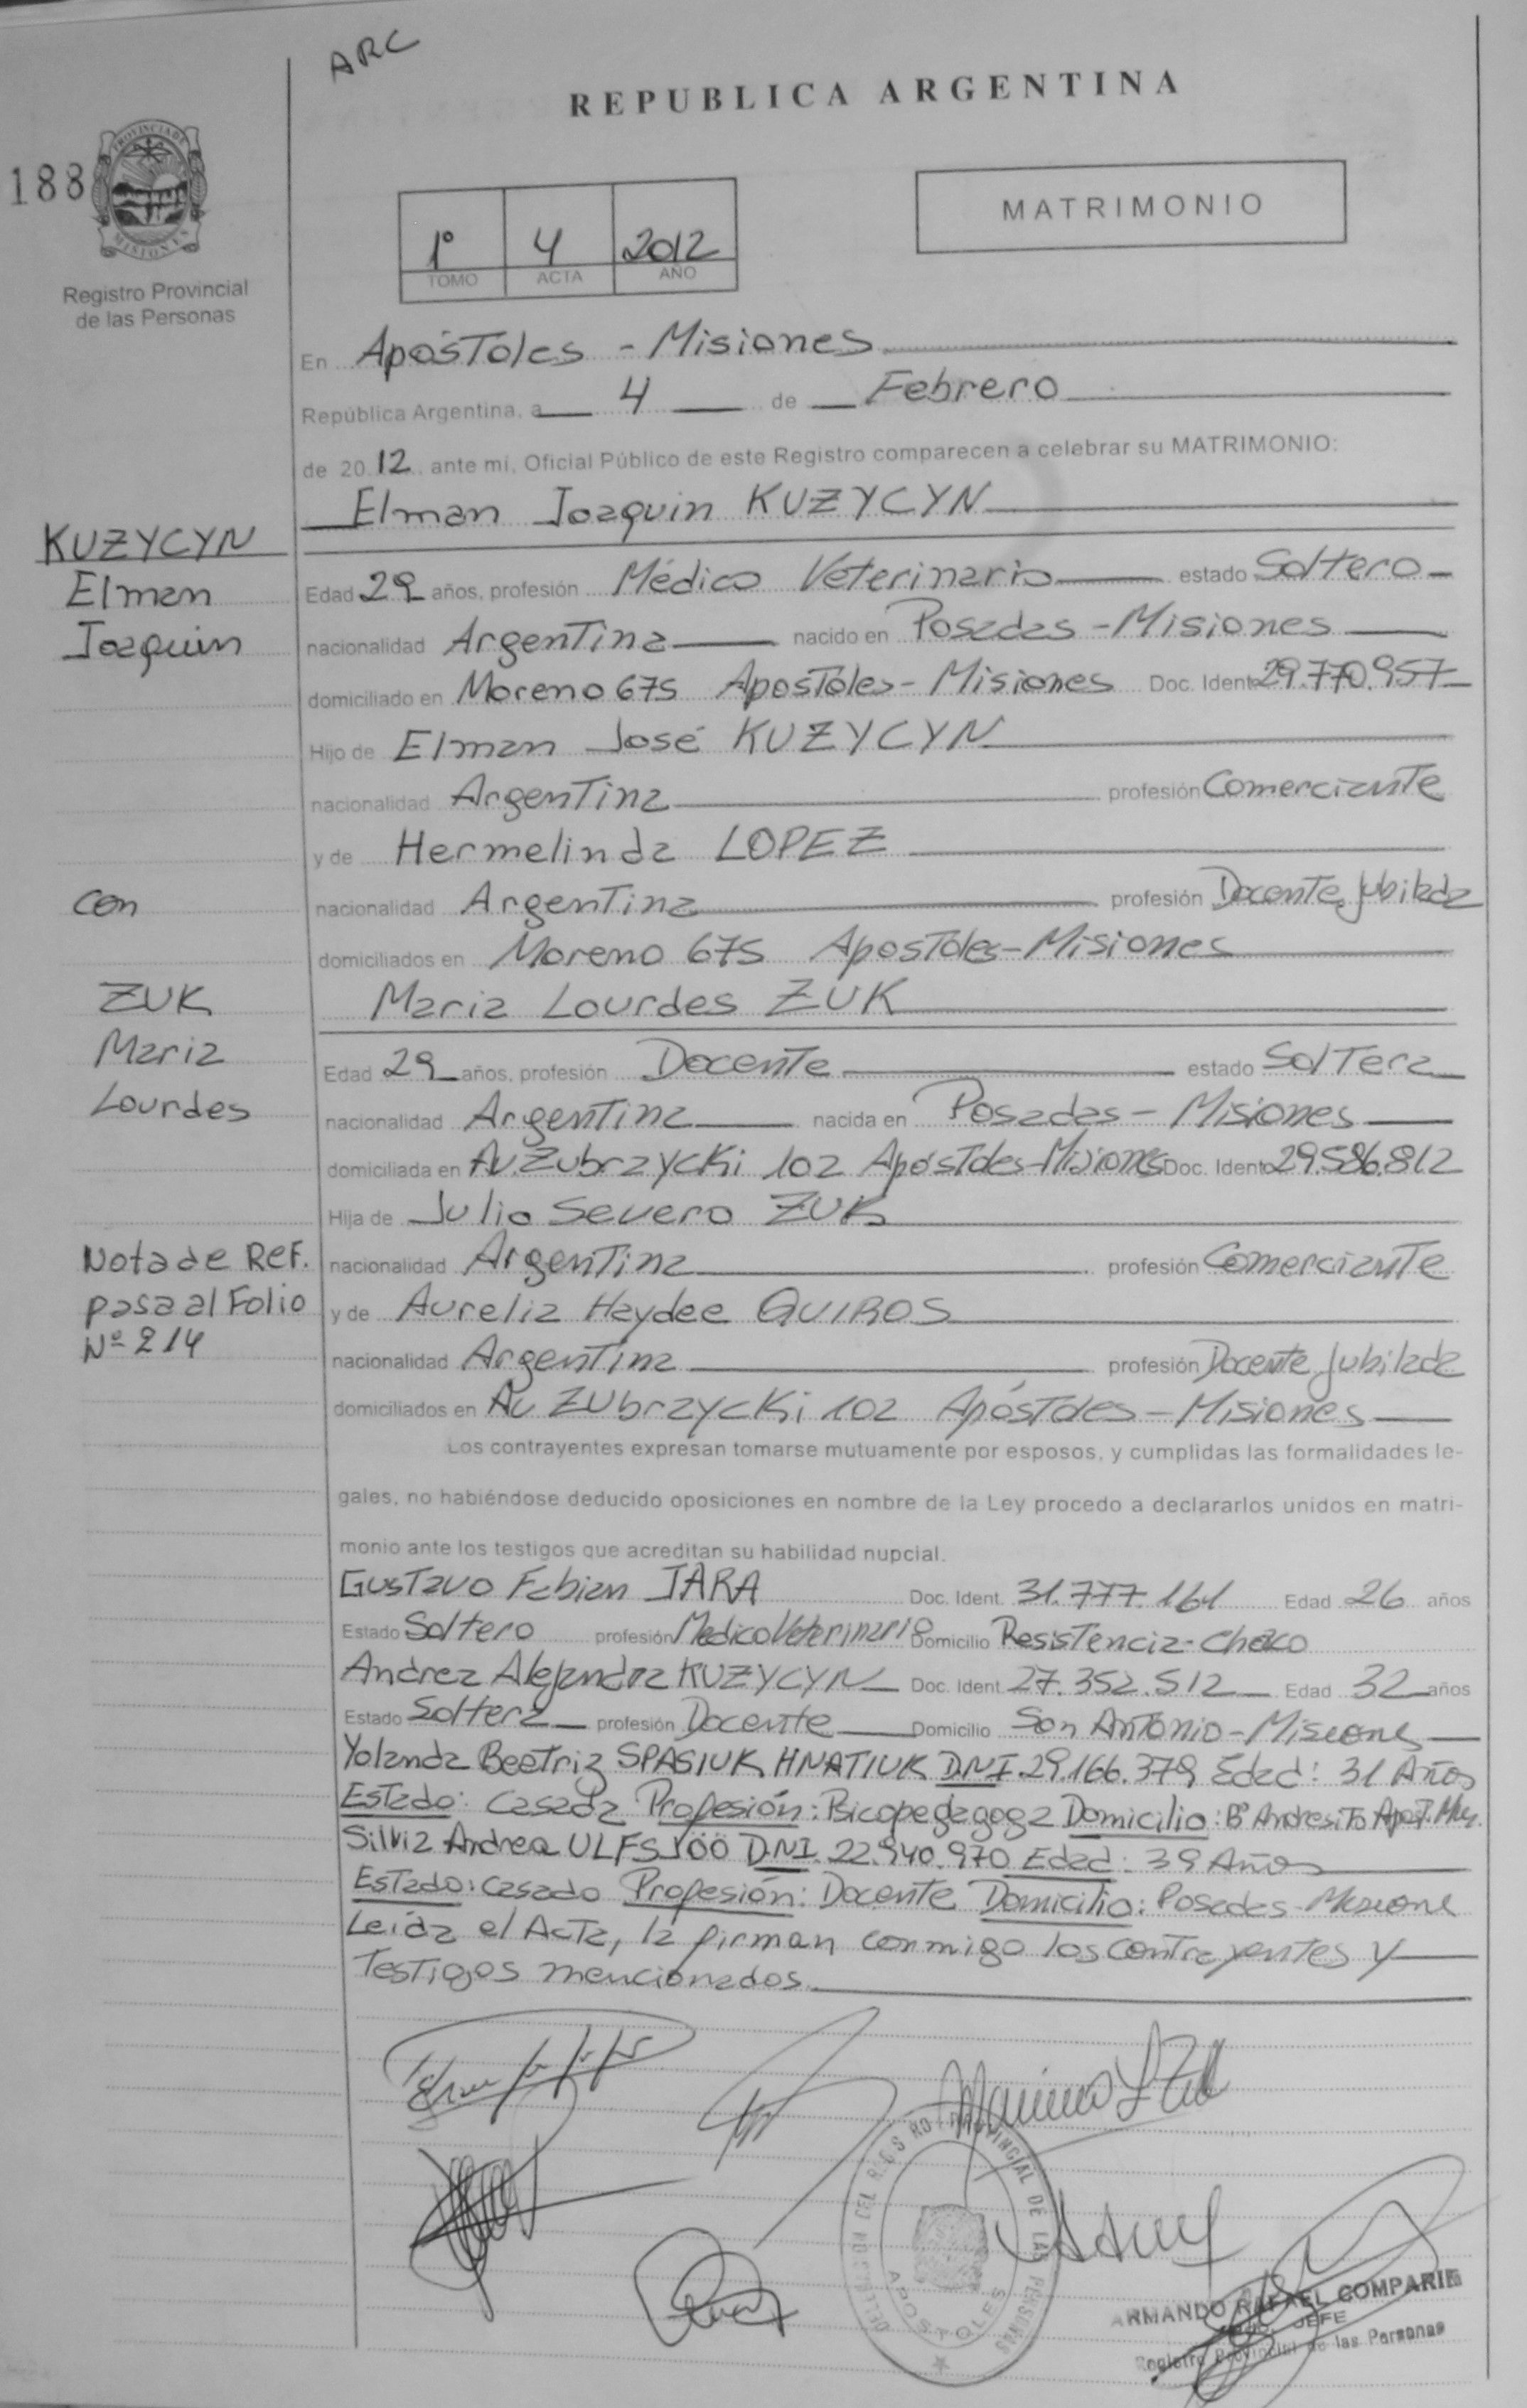 ARC
REPUBLICA ARGENTINA
188
PROVINCIA DE
MISIONES
Registro Provincial
de las Personas
1º 4 2012
TOMO ACTA AÑO
MATRIMONIO
En Apóstoles - Misiones
República Argentina, a 4 de Febrero
de 2012 ante mí, Oficial Público de este Registro comparecen a celebrar su MATRIMONIO:
Elman Joaquin KUZYCYN
KUZYCYN
Elman
Joaquin
Edad 29 años, profesión Médico Veterinario estado Soltero
nacionalidad Argentina nacido en Posadas - Misiones
domiciliado en Moreno 675 Apostoles - Misiones Doc. Ident. 29.770.957
Hijo de Elman José KUZYCYN
nacionalidad Argentina profesión Comerciante
y de Hermelinda LOPEZ
con
nacionalidad Argentina profesión Docente Jubilada
domiciliados en Moreno 675 Apostoles - Misiones
ZUK
Maria
Lourdes
Maria Lourdes ZUK
Edad 29 años, profesión Docente estado Soltera
nacionalidad Argentina nacida en Posadas - Misiones
domiciliada en Av. Zubrzycki 102 Apóstoles - Misiones Doc. Ident. 29.586.812
Hija de Julio Severo ZUK
Nota de Ref.
pasa al Folio
Nº 214
nacionalidad Argentina profesión Comerciante
y de Aurelia Haydee QUIROS
nacionalidad Argentina profesión Docente Jubilada
domiciliados en Av Zubrzycki 102 Apóstoles - Misiones
Los contrayentes expresan tomarse mutuamente por esposos, y cumplidas las formalidades le-
gales, no habiéndose deducido oposiciones en nombre de la Ley procedo a declararlos unidos en matri-
monio ante los testigos que acreditan su habilidad nupcial.
Gustavo Fabian JARA Doc. Ident. 31.777.161 Edad 26 años
Estado Soltero profesión Medico Veterinario Domicilio Resistencia - Chaco
Andrea Alejandra KUZYCYN Doc. Ident. 27.352.512 Edad 32 años
Estado Soltera profesión Docente Domicilio San Antonio - Misiones
Yolanda Beatriz SPASIUK HNATIUK DNI. 29.166.379 Edad: 31 Años
Estado: Casada Profesión: Psicopedagoga Domicilio: Bº Andresito Apost. Mnes.
Silvia Andrea ULFSJÖÖ D.N.I. 22.940.970 Edad: 39 Años
Estado: Casado Profesión: Docente Domicilio: Posadas - Misiones
Leída el Acta, la firman conmigo los contrayentes y
Testigos mencionados.
DELEGACION DEL REGISTRO PROVINCIAL DE LAS PERSONAS
APOSTOLES
ARMANDO RAFAEL COMPARIN
JEFE
Registro Provincial de las Personas